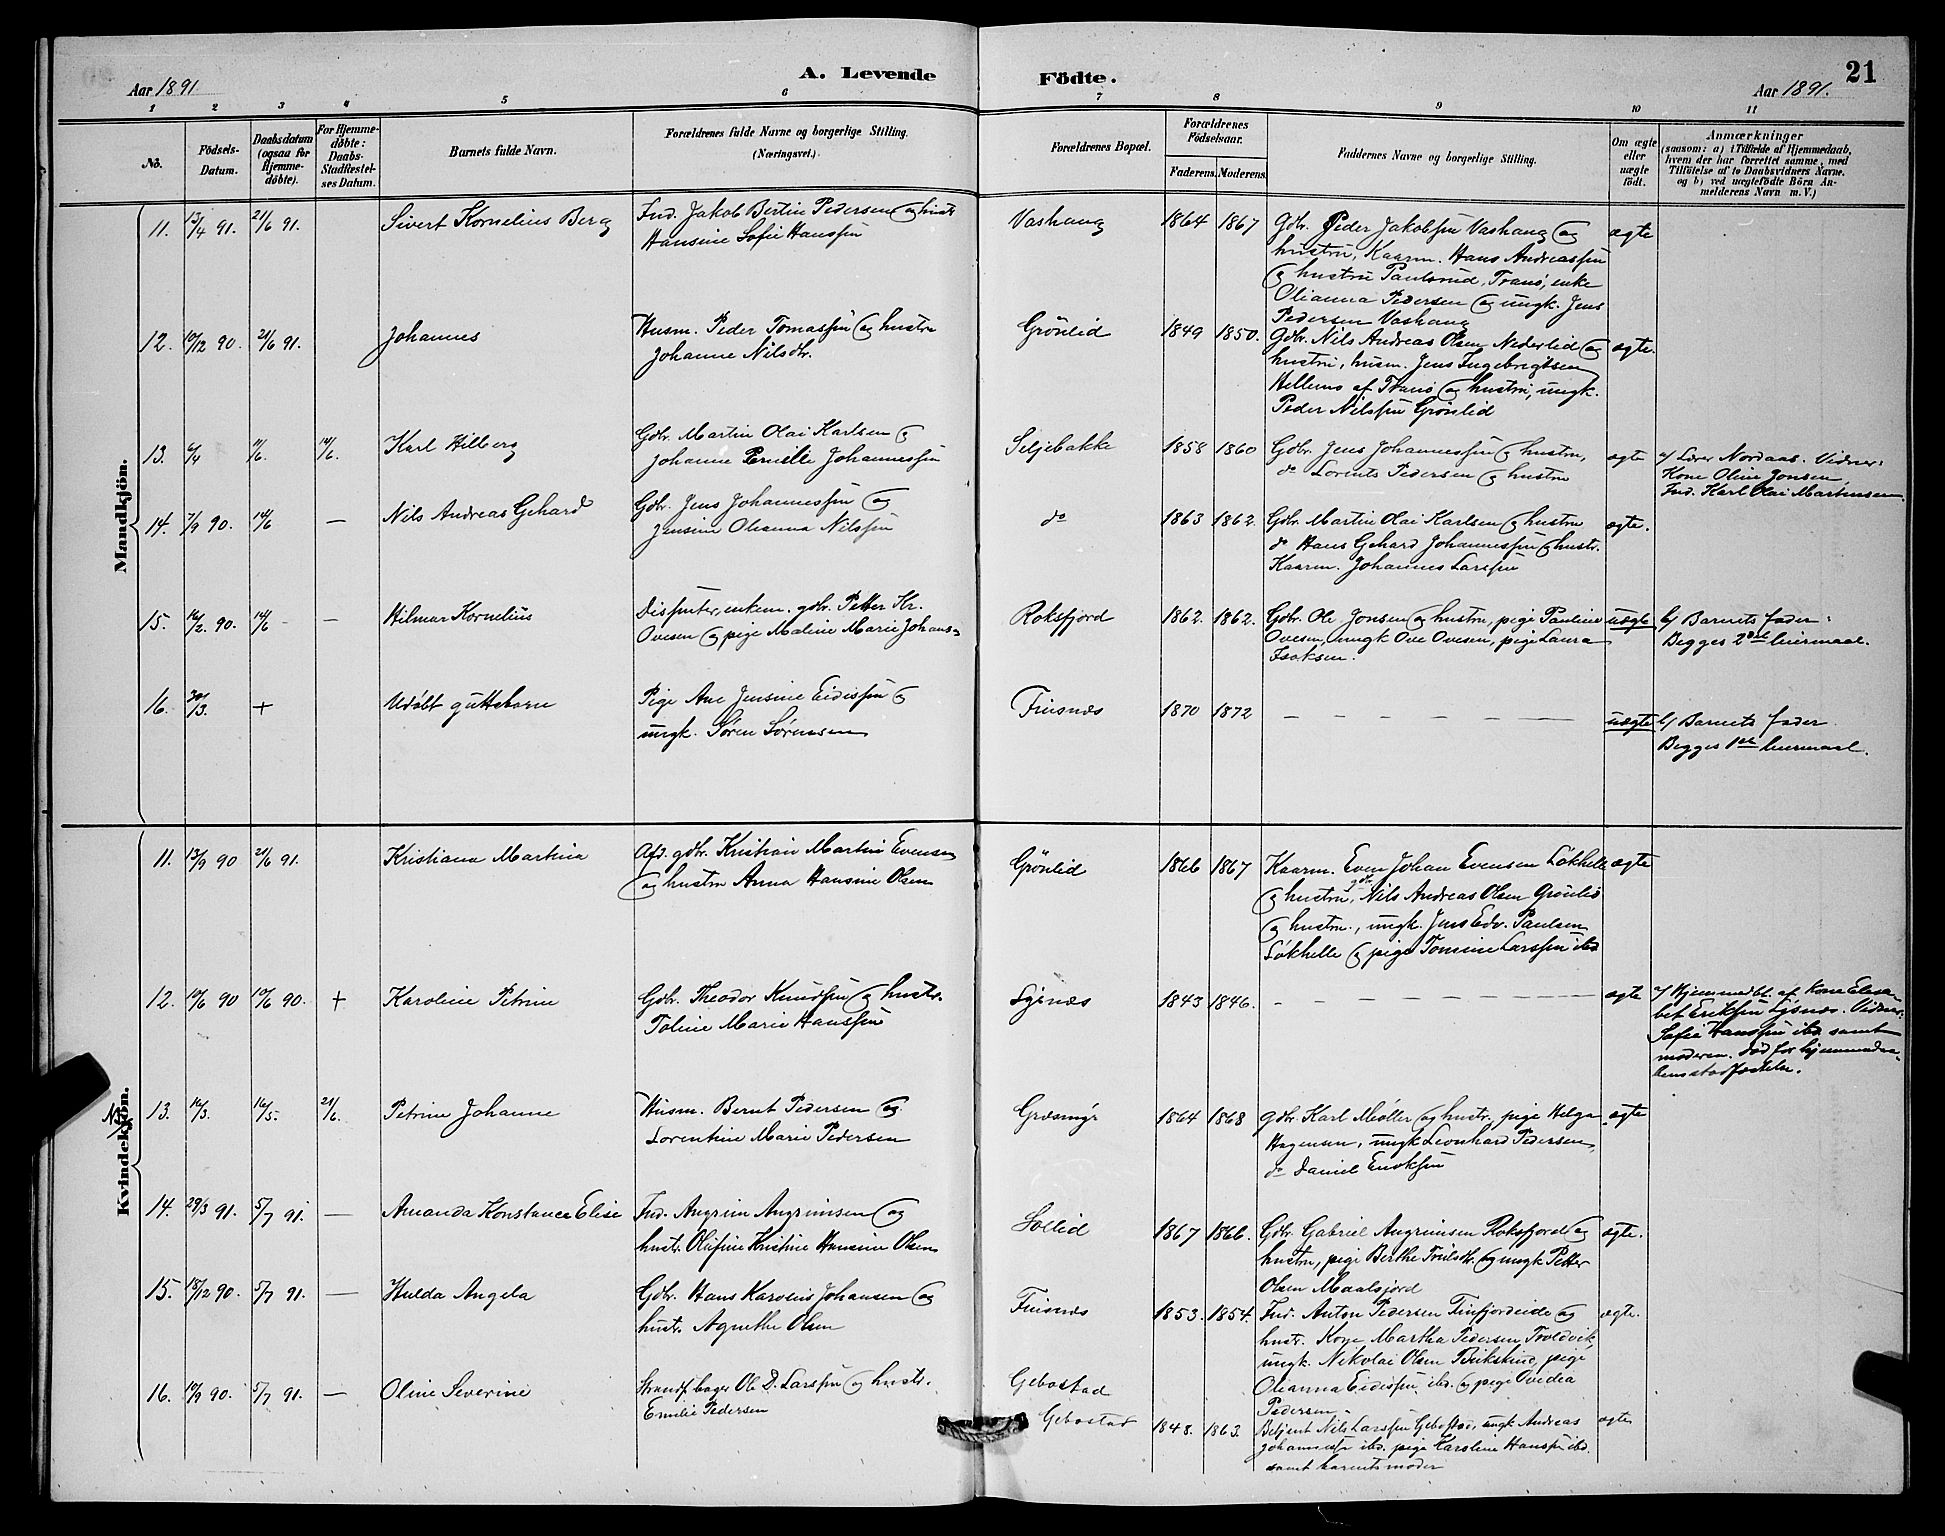 A. Levende Födte.
21
Aar 1891.
Aar 1891.
1 2 3 4 5 6 7 8 9 10 11
No.
Födsels-
Datum.
Daabsdatum
(ogsaa for
Hjemme-
døbte).
For Hjemme-
døbte:
Daabs-
Stadfæstel-
ses Datum.
Barnets fulde Navn.
Forældrenes fulde Navne og borgerlige Stilling.
(Næringsvei.)
Forældrenes Bopæl.
Forældrenes
Födselsaar.
Faderens. Moderens.
Faddernes Navne og borgerlige Stilling.
Om ægte
eller
uægte
födt.
Anmærkninger
(saasom: a) i Tilfælde af Hjemmedaab,
hvem der har forrettet samme, med
Tilføielse af to Daabsvidners Navne.
og b) ved uægtefødte Börn An-
melderens Navn m. V.)
Mandkjön.
11. 13/4 91. 21/6 91. Sivert Kornelius Berg
Ind. Jakob Bertin Pedersen og hustr
Hansine Sofie Hanssen
Vashaug 1864 1867
Gdbr. Peder Jakobsen Vashaug og
hustru, Kaarm. Hans Andreassen
og hustru Paulsrud, Tranø, enke
Olianna Pedersen og ungk. Jens
Pedersen Vashaug
ægte
12. 10/12 90. 21/6 91. Johannes
Husm. Peder Tomassen og hustru
Johanne Nilsdtr.
Grönlid 1849 1850.
Gdbr. Nils Andreas Olsen Nederlid og
hustru, husm. Jens Ingebrigtsen
Hellemo af Tranø og hustru, ungk.
Peder Nilssen Grönlid
ægte.
13. 6/4 11/6. 14/6. Karl Hilberg
Gdbr. Martin Olai Karlsen og
Johanne Pernille Johannessen
Seljebakke 1858 1860
Gdbr. Jens Johannessen og hustru,
do Lorents Pedersen og hustru
ægte
a/ Lærer Nordaas. Vidner:
Kone Oline Jonsen,
Ind. Karl Olai Martinsen.
14. 7/9 90. 14/6 — Nils Andreas Gehard
Gdbr. Jens Johannessen og
Jensine Olianna Nilssen
do 1863 1862.
Gdbr. Martin Olai Karlsen og hustru
do Hans Gehard Johannessen og hustr.
Kaarm. Johannes Larssen
ægte.
15. 16/2. 90. 14/6 - — Hilmar Kornelius
Dissenter, enkem. gdbr. Petter Kr.
Ovesen og pige Maline Marie Johans-
Roksfjord 1862. 1862.
Gdbr. Ole Jonsen og hustru, pige Pauline
Ovesen, ungk Ove Ovesen, pige Laura
Isaksen.
uægte
b/ Barnets fader:
Begges 2det leiermaal.
16. 30/3. + Udöbt guttebarn
Pige Ane Jensine Eidissen og
ungk. Søren Sørensen
Finsnæs 1870 1872 — — —
uægte
b/ Barnets fader.
Begges 1ste leiermaal.
Kvindekjön.
11. 13/9 90 21/6 91. Kristiana Martina
Afd. gdbr. Kristian Martin Evensen
og hustru Anna Hansine Olsen
Grönlid 1866 1867
Kaarm. Even Johan Evensen Løkhelle
og hustru, gdbr. Nils Andreas Olsen Grönlid
og hustru., ungk. Jens Edv. Paulsen
Løkhelle og pige Tomine Larssen ibd
ægte
12. 10/6 90 10/6 90. + Karoline Petrine
Gdbr. Theodor Knudsen og hustr.
Toline Marie Hanssen
Lysnæs 1843 1846. — — —
ægte
a/ Hjemmedbt. af kone Elisa-
bet Eriksen Lysnæs. Vidner:
Sofie Hanssen ibd samt
moderen. Død før hjemmedaa-
13. 16/3. 16/5. 21/6. Petrine Johanne
Husm. Bernt Pedersen og
Lorentine Marie Pedersen
Græsmyr 1864 1868
gdbr. Karl Møller og hustr., pige Helga
Hagensen, ungk Leonhard Pedersen,
do Daniel Enoksen
ægte
14. 29/3 91. 5/7 91. — Amanda Konstance Elise
Ind. Angrim Angrimsen og
hustr. Olufine Kristine Hansine Olsen
Sollid 1867 1866.
Gdbr. Gabriel Angrimsen Roksfjord og
hustru, pige Berthe og ungk Petter
Olsen Maalsjord
ægte.
15. 18/12 90. 5/7 91. — Hulda Angela
Gdbr. Hans Karolius Johansen og
hustr. Agnethe Olsen
Finsnæs 1853. 1854.
Ind. Anton Pedersen Finfjordeide og
hustr. Kone Martha Pedersen Troldvik,
ungk. Nikolai Olsen pige
Olianna Eidissen, ibd. og pige Ovidea
Pedersen.
ægte.
16. 10/9 90. 5/7 91. — Oline Severine
Ole D. Larssen og hustr.
Emilie Pedersen
Gebostad
Gebostad 1848. 1863.
Betjent Nils Larssen Gebostad, ungk Andreas
Johannessen ibd. pige Karoline Hanssen ibd.
samt barnets moder
ægte